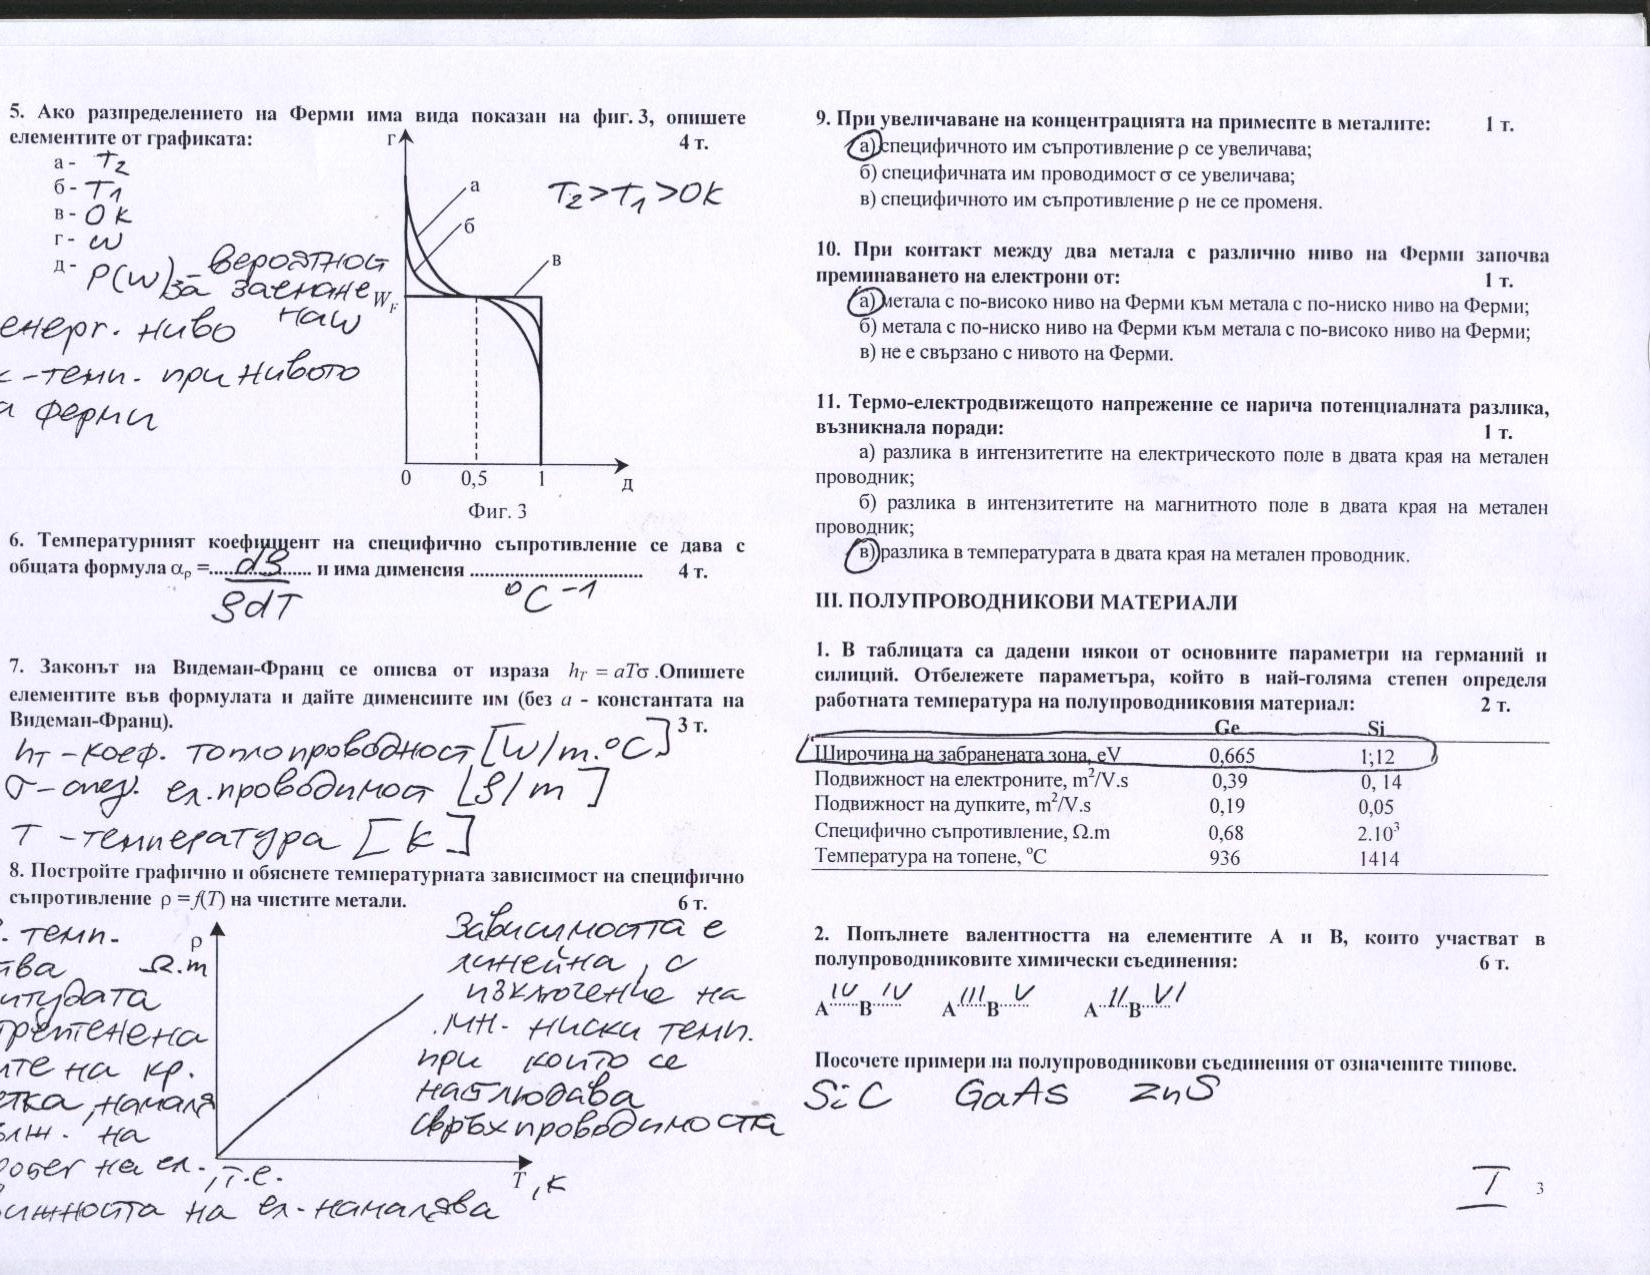 5. Ако разпределението на Ферми има вида показан на фиг. 3, опишете
елементите от графиката: 4 т.
а - T2
б - T1
в - 0 K
г - W
д - P(W) - вероятност
за заемане
на W
енерг. ниво
-темп. при нивото
ферми
г
а
б
в
T2 > T1 > 0K
W_F
0 0,5 1 д
Фиг. 3
6. Температурният коефициент на специфично съпротивление се дава с
общата формула αρ =..................... и има дименсия ................................ 4 т.
dρ
ρdT
°C⁻¹
7. Законът на Видеман-Франц се описва от израза hT = aTσ .Опишете
елементите във формулата и дайте дименсиите им (без a - константата на
Видеман-Франц). 3 т.
hT - коеф. топлопроводност [W/m.°C]
σ - спец. ел. проводимост [S/m]
T - температура [K]
8. Постройте графично и обяснете температурната зависимост на специфично
съпротивление ρ = f(T) на чистите метали. 6 т.
темп.
ρ
Ω.m
на кр.
на
на ел., т.е.
на ел. намалява
T, K
Зависимостта е
линейна, с
изключение на
мн. ниски темп.
при които се
наблюдава
свръхпроводимостта
9. При увеличаване на концентрацията на примесите в металите: 1 т.
а) специфичното им съпротивление ρ се увеличава;
б) специфичната им проводимост σ се увеличава;
в) специфичното им съпротивление ρ не се променя.
10. При контакт между два метала с различно ниво на Ферми започва
преминаването на електрони от: 1 т.
а) метала с по-високо ниво на Ферми към метала с по-ниско ниво на Ферми;
б) метала с по-ниско ниво на Ферми към метала с по-високо ниво на Ферми;
в) не е свързано с нивото на Ферми.
11. Термо-електродвижещото напрежение се нарича потенциалната разлика,
възникнала поради: 1 т.
а) разлика в интензитетите на електрическото поле в двата края на метален
проводник;
б) разлика в интензитетите на магнитното поле в двата края на метален
проводник;
в) разлика в температурата в двата края на метален проводник.
III. ПОЛУПРОВОДНИКОВИ МАТЕРИАЛИ
1. В таблицата са дадени някои от основните параметри на германий и
силиций. Отбележете параметъра, който в най-голяма степен определя
работната температура на полупроводниковия материал: 2 т.
Ge Si
Широчина на забранената зона, eV 0,665 1,12
Подвижност на електроните, m²/V.s 0,39 0, 14
Подвижност на дупките, m²/V.s 0,19 0,05
Специфично съпротивление, Ω.m 0,68 2.10³
Температура на топене, °C 936 1414
2. Попълнете валентността на елементите А и В, които участват в
полупроводниковите химически съединения: 6 т.
А IV В IV А III В V А II В VI
Посочете примери на полупроводникови съединения от означените типове.
SiC GaAs ZnS
I 3